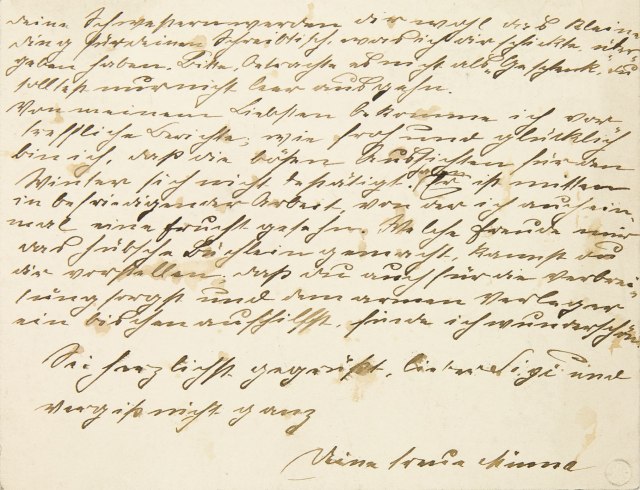 deine Schwestern werden dir wohl das kleine
Ding für deinen Schreibtisch, was ich dir schickte, über
geben haben. Bitte, betrachte es nicht als Geschenk, du
solltest nur nicht leer ausgehn.
Von meinem Liebsten bekomme ich vor
treffliche Berichte, wie froh und glücklich
bin ich, daß die bösen Aussichten für den
Winter sich nicht bestätigt haben. Er ist mitten
in befriedigender Arbeit, von der ich auch ein
mal eine Frucht gesehn. Welche Freude mir
das hübsche Büchlein gemacht, kannst du
dir vorstellen, daß du auch für die Verbrei
tung sorgst und dem armen Verleger
ein bischen aushilfst, finde ich wunderschön
Sei herzlichst gegrüßt, lieber und
vergiß nicht ganz
Deine treue Minna